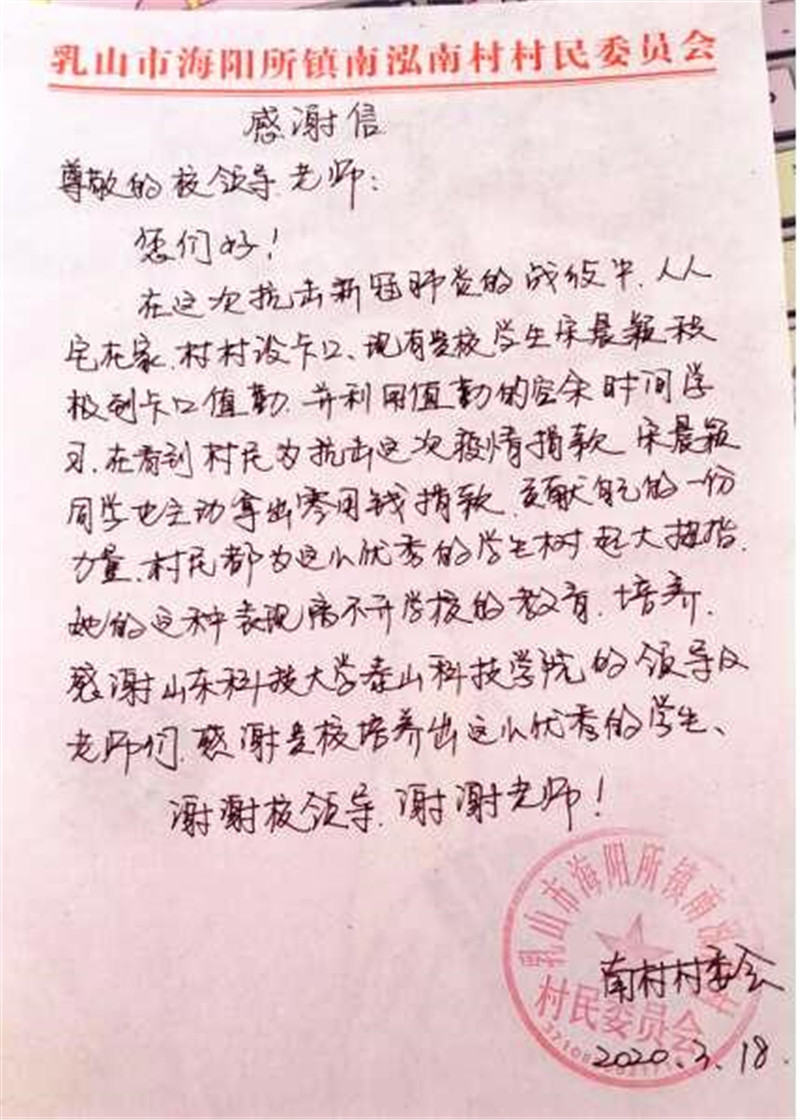 乳山市海阳所镇南泓南村村民委员会
感谢信
尊敬的校领导、老师：
您们好！
在这次抗击新冠肺炎的战役中，人人
宅在家，村村设卡口、现有贵校学生宋晨颖积
极到卡口值勤，并利用值勤的空余时间学
习，在看到村民为抗击这次疫情捐款，宋晨颖
同学也主动拿出零用钱捐款，贡献自己的一份
力量，村民都为这么优秀的学生树起大拇指，
她的这种表现离不开学校的教育，培养，
感谢山东科技大学泰山科技学院的领导及
老师们，感谢贵校培养出这么优秀的学生、
谢谢校领导，谢谢老师！
乳山市海阳所镇南泓南村
村民委员会
南村村委会
2020.3.18.